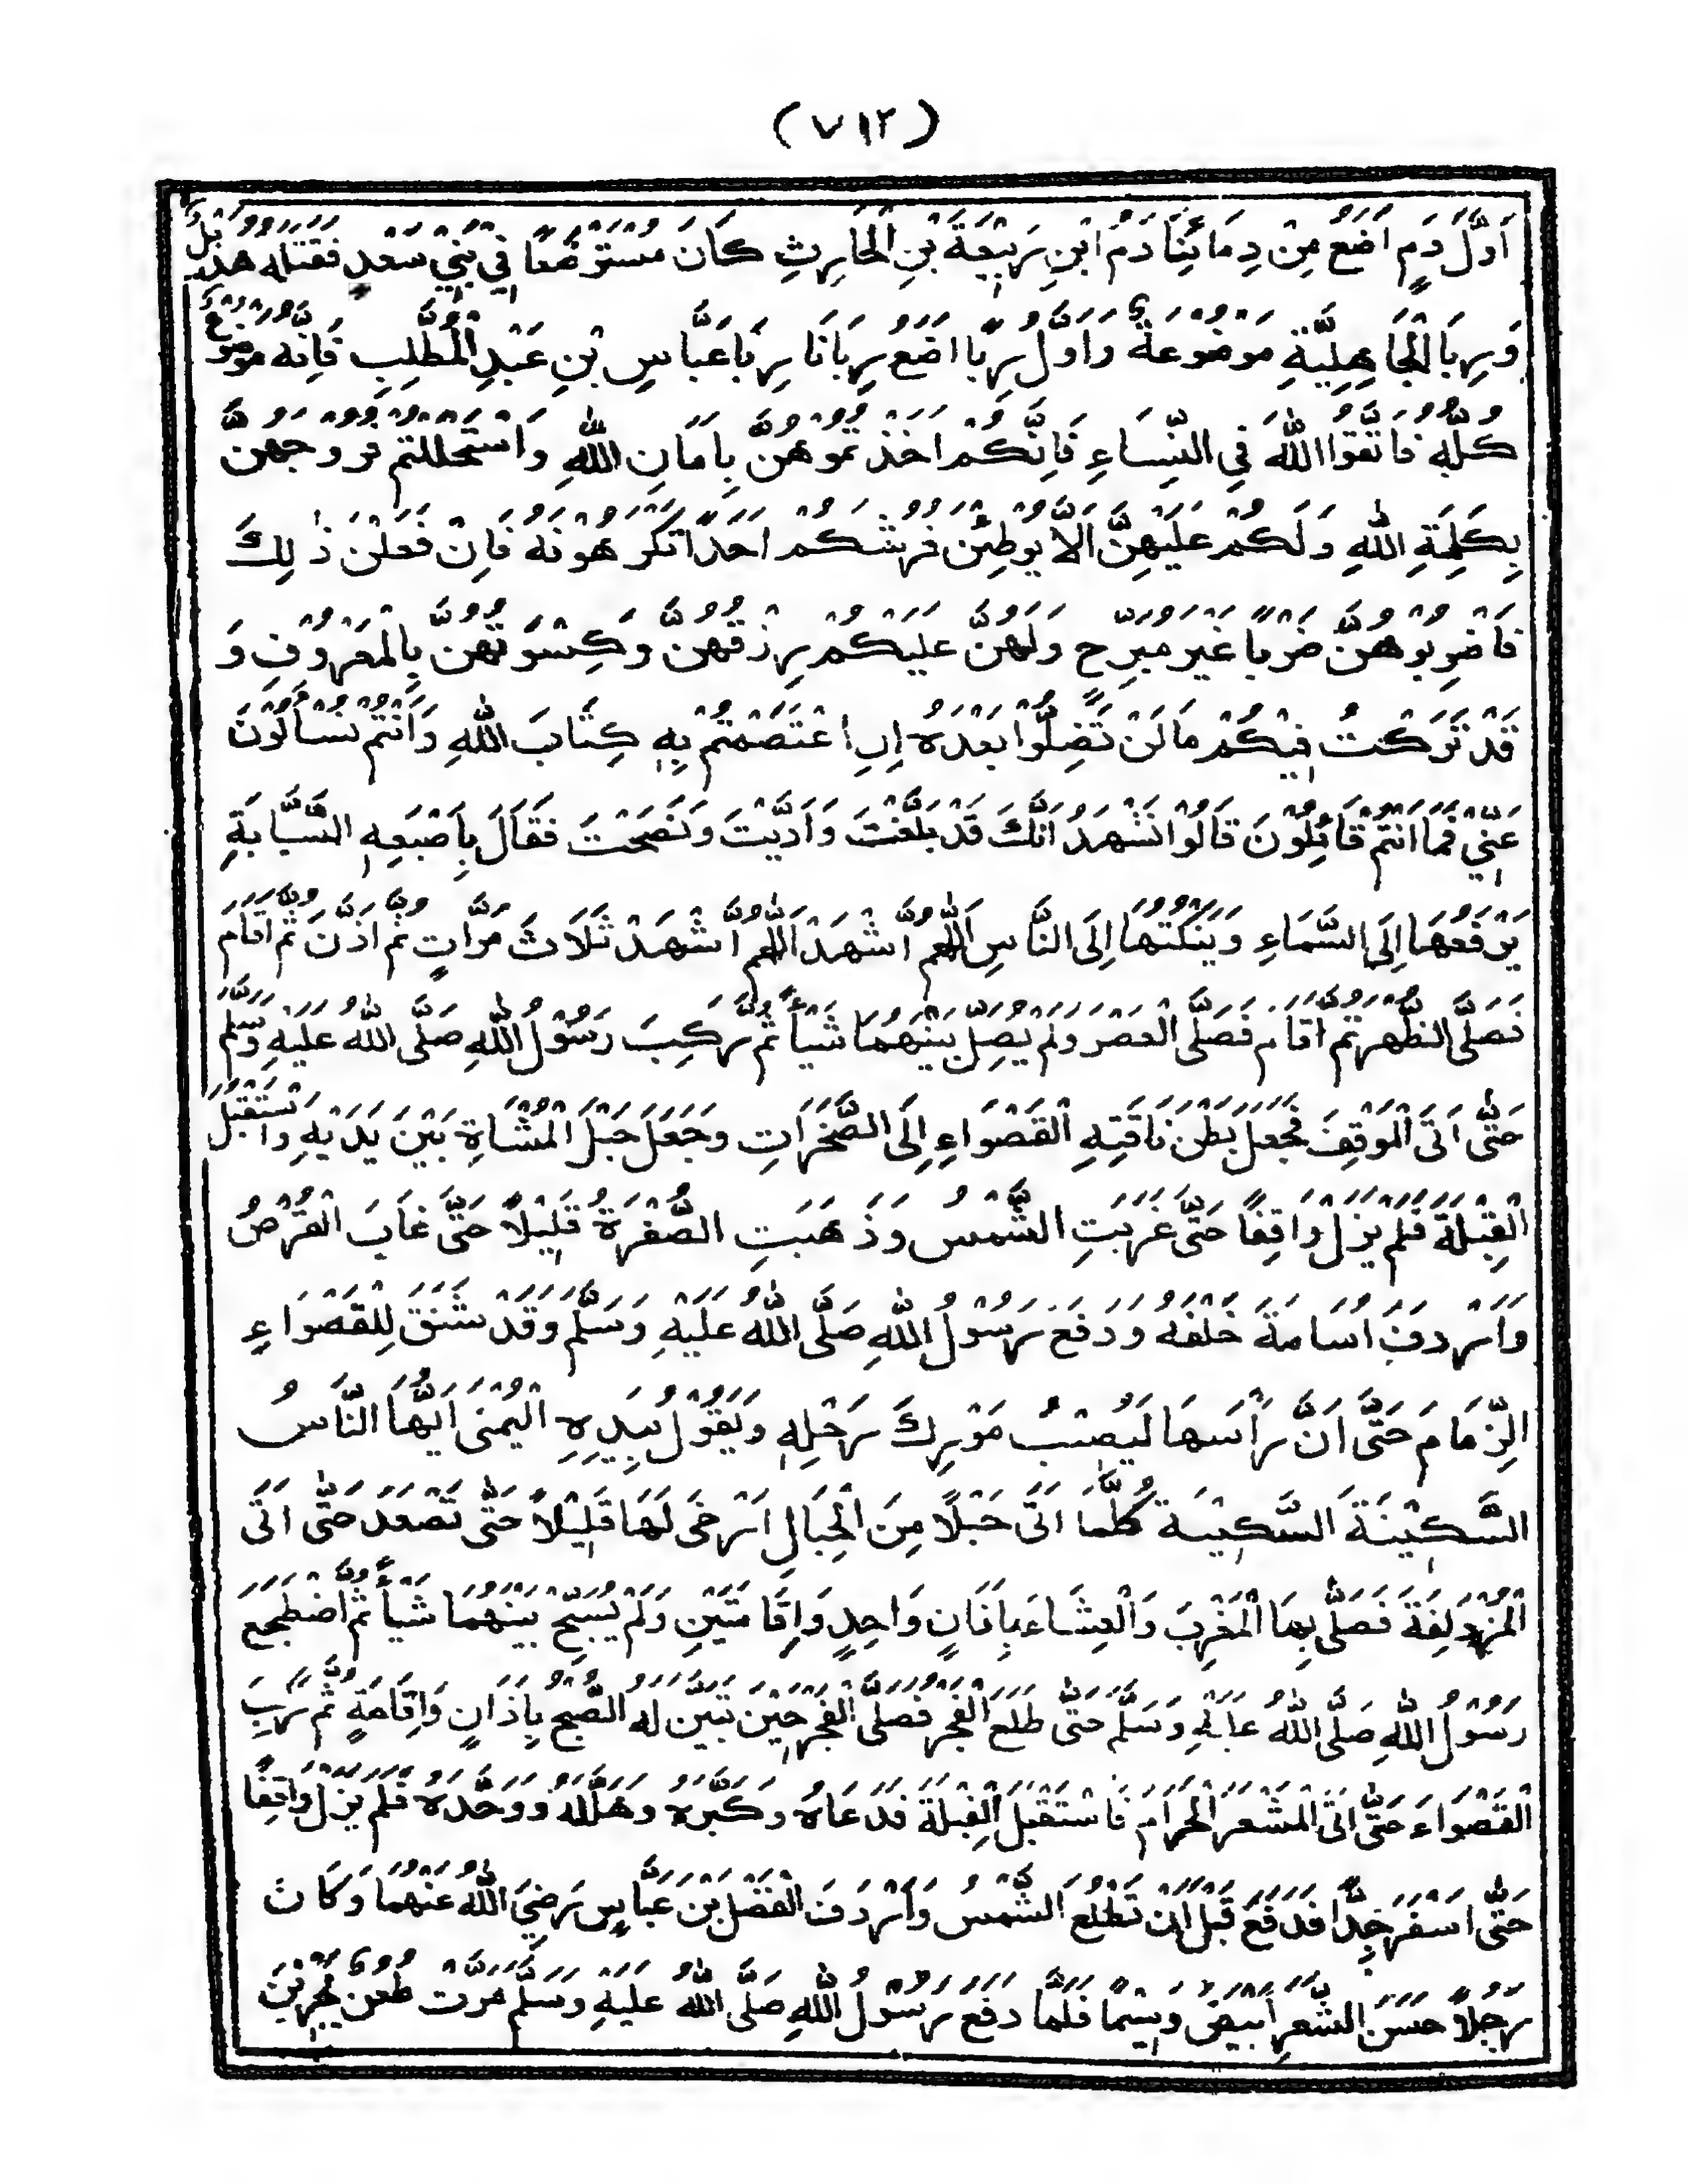 (٧١٢)
اَوَّلَ دَمٍ اَضَعُ مِنْ دِمَائِنَا دَمُ ابْنِ رَبِيْعَةَ بْنِ الْحَارِثِ كَانَ مُسْتَرْضَعًا فِيْ بَنِيْ سَعْدٍ فَقَتَلَهُ هُذَيْلٌ
وَرِبَا الْجَاهِلِيَّةِ مَوْضُوْعَةٌ وَاَوَّلُ رِبًا اَضَعُ رِبَانَا رِبَا عَبَّاسِ بْنِ عَبْدِ الْمُطَّلِبِ فَاِنَّهُ مَوْضُوْعٌ
كُلُّهُ فَاتَّقُوا اللهَ فِي النِّسَاءِ فَاِنَّكُمْ اَخَذْتُمُوْهُنَّ بِاَمَانِ اللهِ وَاسْتَحْلَلْتُمْ فُرُوْجَهُنَّ
بِكَلِمَةِ اللهِ وَلَكُمْ عَلَيْهِنَّ اَلَّا يُوْطِئْنَ فُرُشَكُمْ اَحَدًا تَكْرَهُوْنَهُ فَاِنْ فَعَلْنَ ذٰلِكَ
فَاضْرِبُوْهُنَّ ضَرْبًا غَيْرَ مُبَرِّحٍ وَلَهُنَّ عَلَيْكُمْ رِزْقُهُنَّ وَكِسْوَتُهُنَّ بِالْمَعْرُوْفِ وَ
قَدْ تَرَكْتُ فِيْكُمْ مَا لَنْ تَضِلُّوْا بَعْدَهُ اِنِ اعْتَصَمْتُمْ بِهِ كِتَابَ اللهِ وَاَنْتُمْ تُسْاَلُوْنَ
عَنِّيْ فَمَا اَنْتُمْ قَائِلُوْنَ قَالُوْا نَشْهَدُ اَنَّكَ قَدْ بَلَّغْتَ وَاَدَّيْتَ وَنَصَحْتَ فَقَالَ بِاَصْبَعِهِ السَّبَّابَةِ
يَرْفَعُهَا اِلَى السَّمَاءِ وَيَنْكُتُهَا اِلَى النَّاسِ اللّٰهُمَّ اشْهَدْ اللّٰهُمَّ اشْهَدْ ثَلَاثَ مَرَّاتٍ ثُمَّ اَذَّنَ ثُمَّ اَقَامَ
فَصَلَّى الظُّهْرَ ثُمَّ اَقَامَ فَصَلَّى الْعَصْرَ وَلَمْ يُصَلِّ بَيْنَهُمَا شَيْأً ثُمَّ رَكِبَ رَسُوْلُ اللهِ صَلَّى اللهُ عَلَيْهِ وَسَلَّمَ
حَتّٰى اَتَى الْمَوْقِفَ فَجَعَلَ بَطْنَ نَاقَتِهِ الْقَصْوَاءِ اِلَى الصَّخَرَاتِ وَجَعَلَ حَبْلَ الْمُشَاةِ بَيْنَ يَدَيْهِ وَاسْتَقْبَلَ
الْقِبْلَةَ فَلَمْ يَزَلْ وَاقِفًا حَتّٰى غَرَبَتِ الشَّمْسُ وَذَهَبَتِ الصُّفْرَةُ قَلِيْلًا حَتّٰى غَابَ الْقُرْصُ
وَاَرْدَفَ اُسَامَةَ خَلْفَهُ وَدَفَعَ رَسُوْلُ اللهِ صَلَّى اللهُ عَلَيْهِ وَسَلَّمَ وَقَدْ شَنَقَ لِلْقَصْوَاءِ
الزِّمَامَ حَتّٰى اَنَّ رَأْسَهَا لَيُصِيْبُ مَوْرِكَ رَحْلِهِ وَيَقُوْلُ بِيَدِهِ الْيُمْنٰى اَيُّهَا النَّاسُ
السَّكِيْنَةَ السَّكِيْنَةَ كُلَّمَا اَتٰى حَبْلًا مِنَ الْحِبَالِ اَرْخٰى لَهَا قَلِيْلًا حَتّٰى تَصْعَدَ حَتّٰى اَتَى
الْمُزْدَلِفَةَ فَصَلّٰى بِهَا الْمَغْرِبَ وَالْعِشَاءَ بِاَذَانٍ وَاحِدٍ وَاِقَامَتَيْنِ وَلَمْ يُسَبِّحْ بَيْنَهُمَا شَيْأً ثُمَّ اضْطَجَعَ
رَسُوْلُ اللهِ صَلَّى اللهُ عَلَيْهِ وَسَلَّمَ حَتّٰى طَلَعَ الْفَجْرُ فَصَلَّى الْفَجْرَ حِيْنَ تَبَيَّنَ لَهُ الصُّبْحُ بِاَذَانٍ وَاِقَامَةٍ ثُمَّ رَكِبَ
الْقَصْوَاءَ حَتّٰى اَتَى الْمَشْعَرَ الْحَرَامَ فَاسْتَقْبَلَ الْقِبْلَةَ فَدَعَاهُ وَكَبَّرَهُ وَهَلَّلَهُ وَوَحَّدَهُ فَلَمْ يَزَلْ وَاقِفًا
حَتّٰى اَسْفَرَ جِدًّا فَدَفَعَ قَبْلَ اَنْ تَطْلُعَ الشَّمْسُ وَاَرْدَفَ الْفَضْلَ بْنَ عَبَّاسٍ رَضِيَ اللهُ عَنْهُمَا وَكَانَ
رَجُلًا حَسَنَ الشَّعْرِ اَبْيَضَ وَسِيْمًا فَلَمَّا دَفَعَ رَسُوْلُ اللهِ صَلَّى اللهُ عَلَيْهِ وَسَلَّمَ مَرَّتْ ظُعُنٌ يَجْرِيْنَ